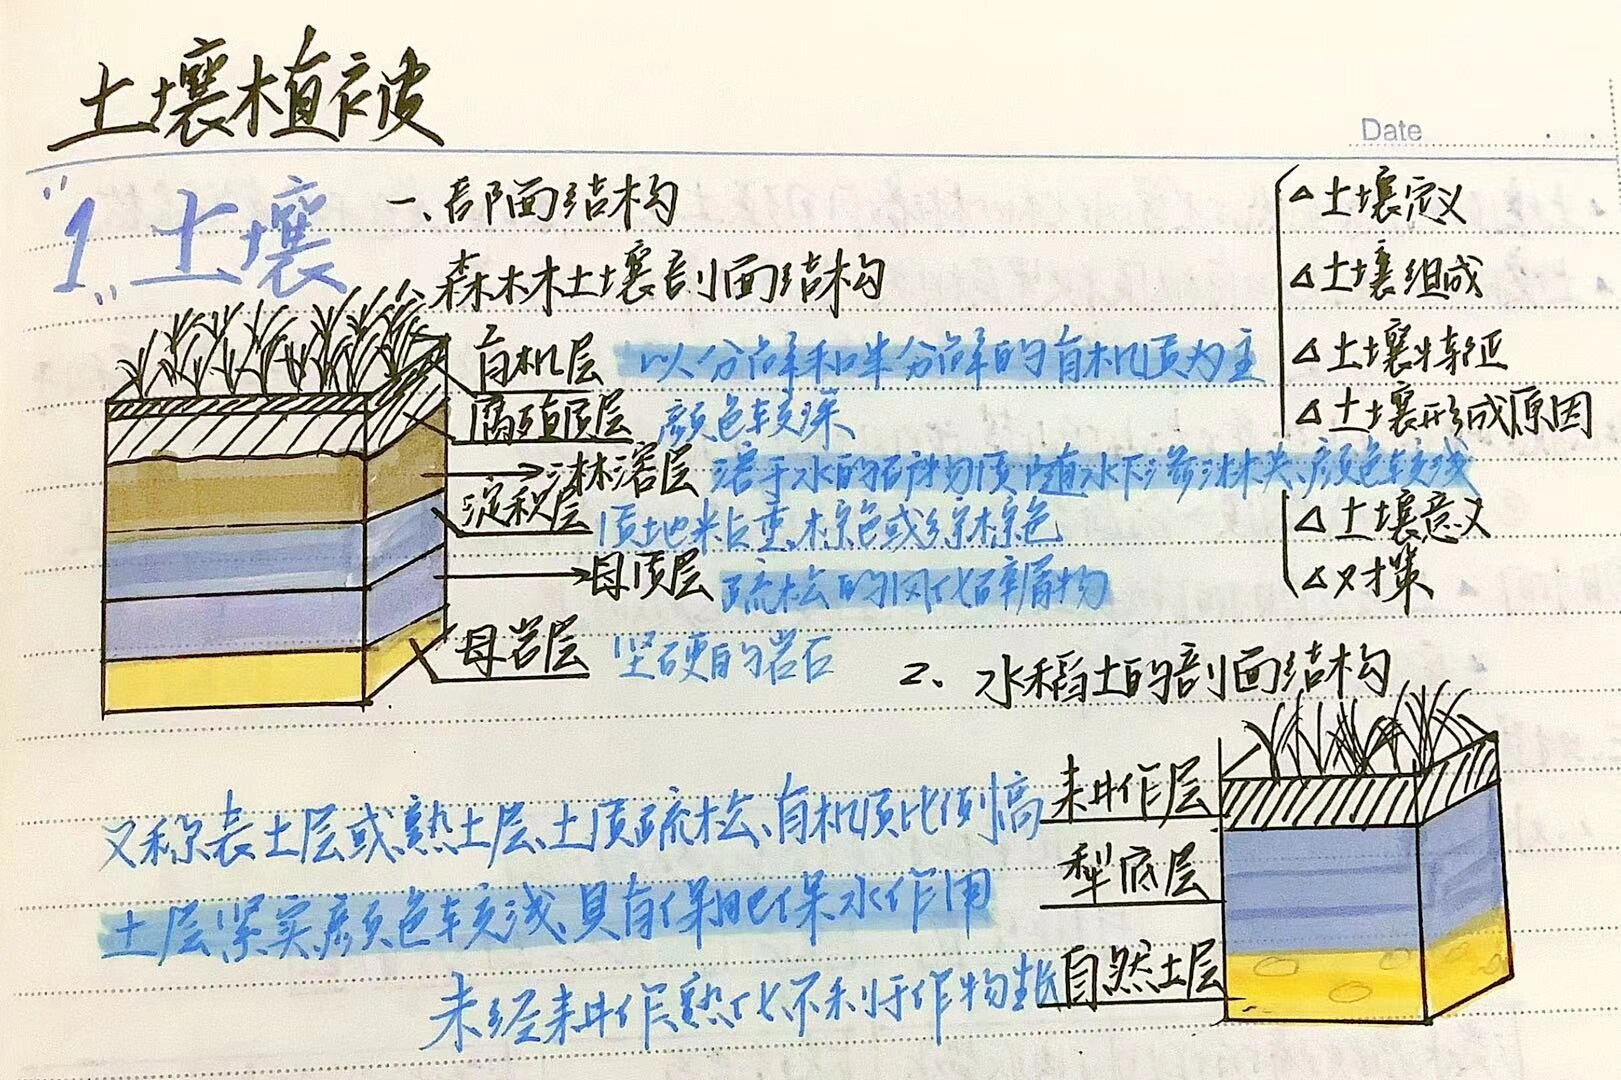 土壤植被
Date
"1" 土壤
一、剖面结构
森林土壤剖面结构
有机层 以分解和半分解的有机质为主
腐殖质层 颜色较深
淋溶层 溶于水的矿物质随水下渗淋失、颜色较浅
淀积层 质地粘重、棕色或红棕色
母质层 疏松的风化碎屑物
母岩层 坚硬的岩石
△土壤定义
△土壤组成
△土壤特征
△土壤形成原因
△土壤意义
△对策
2、水稻土的剖面结构
又称表土层或熟土层、土质疏松、有机质比例高 耕作层
土层紧实、颜色较浅、具有保肥保水作用 犁底层
未经耕作、熟化不利于作物生长 自然土层